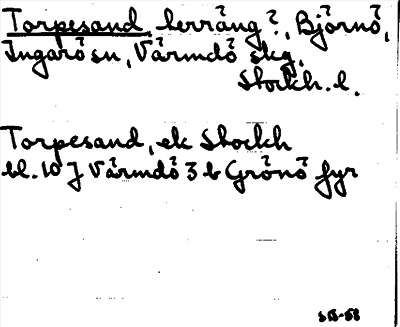 Torpesand, terräng?, Björnö,
Ingarö sn, Värmdö skg,
Stockh. l.
Torpesand, ek Stockh
bl. 10 J Värmdö 3 b Grönö fyr